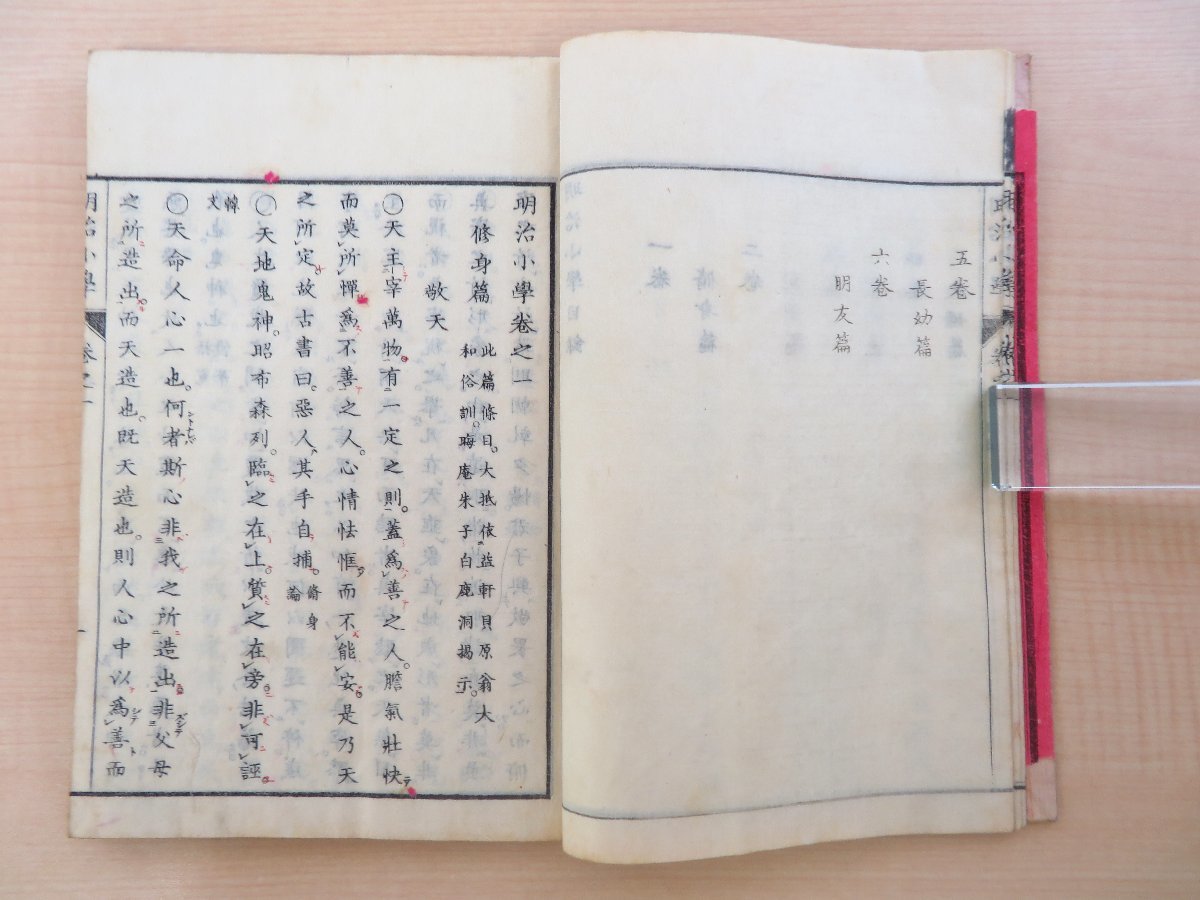 五卷
長幼篇
六卷
朋友篇
明治小學卷之一
修身篇
此篇條目。大抵依益軒貝原翁大
和俗訓。晦庵朱子白鹿洞揭示。
敬天
天主宰萬物。有一定之則。蓋爲善之人。膽氣壯快
而莫所憚。爲不善之人。心情怯恇而不能安。是乃天
之所定。故古書曰。惡人其手自捕。脩身論
○天地鬼神。昭布森列。臨之在上。質之在旁。非可誣。
韓文
○天命人心一也。何者斯心非我之所造出。非父母
之所造出。而天造也。既天造也。則人心中以爲善而
明治小學 卷之一 一